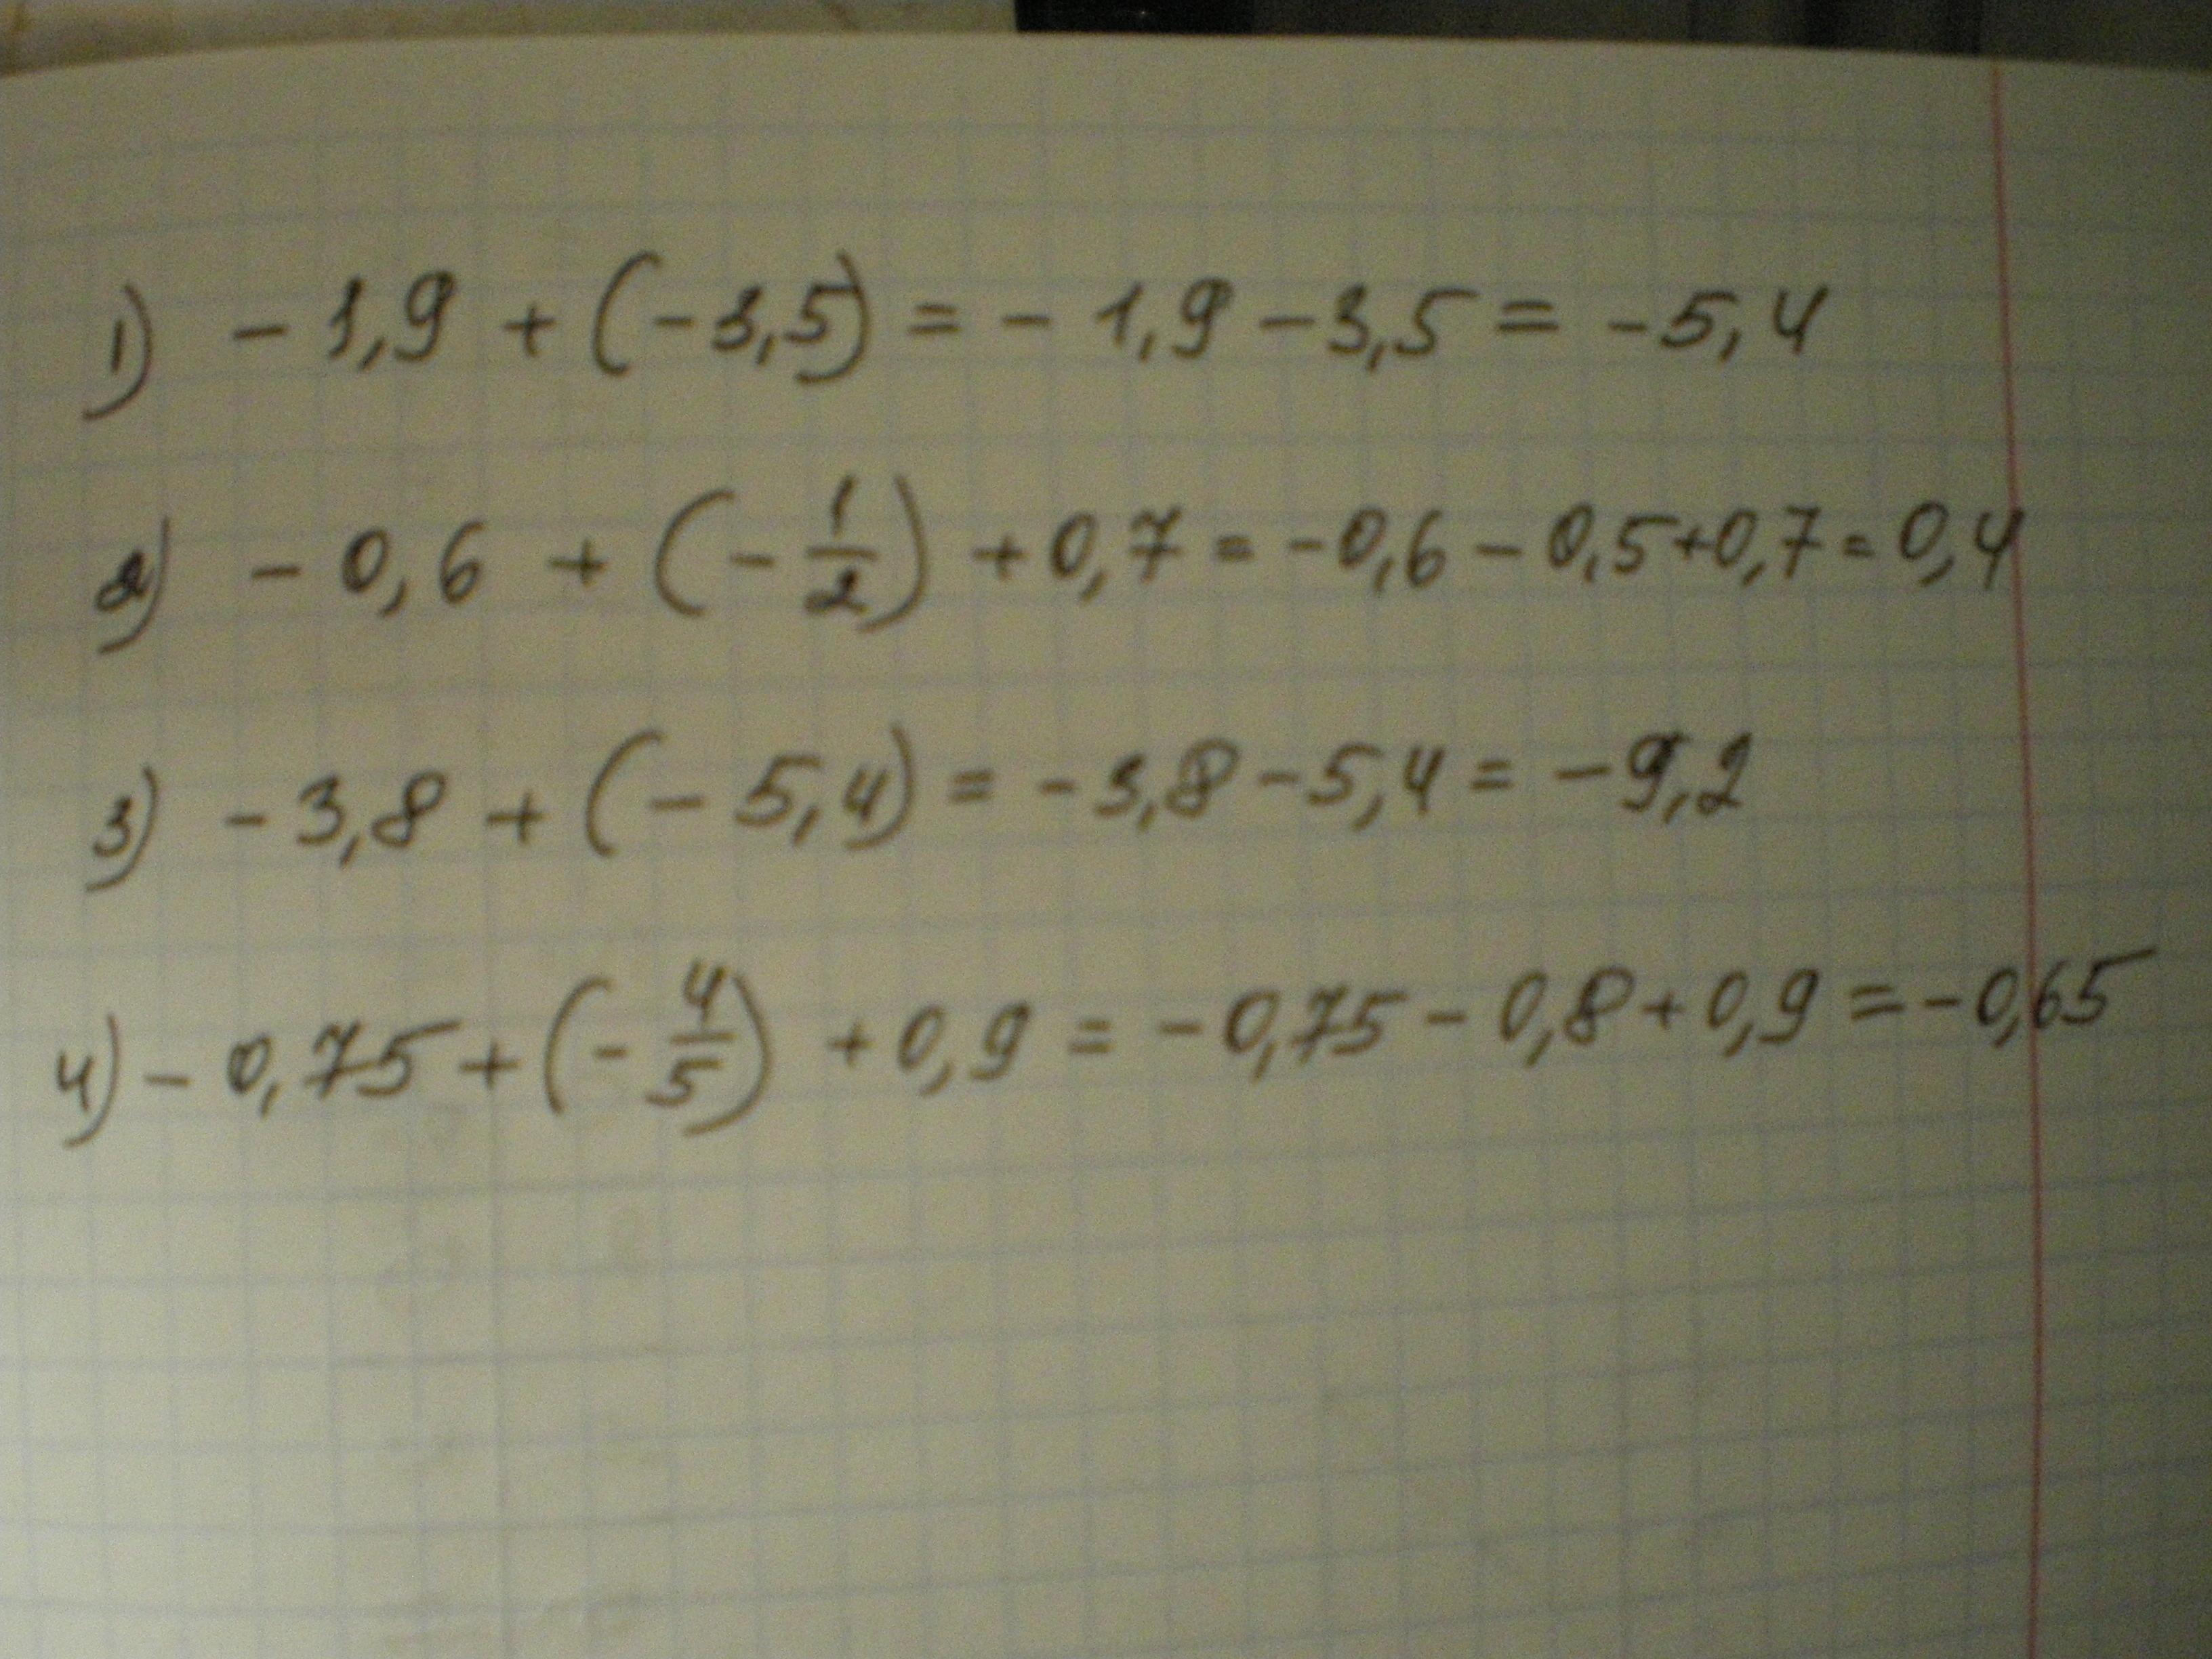 1) - 1,9 + (-3,5) = - 1,9 - 3,5 = -5,4
2) - 0,6 + (- 1/2) + 0,7 = -0,6 - 0,5+0,7 = 0,4
3) - 3,8 + (- 5,4) = - 3,8 - 5,4 = - 9,2
4) - 0,75 + (- 4/5) + 0,9 = - 0,75 - 0,8 + 0,9 = - 0,65